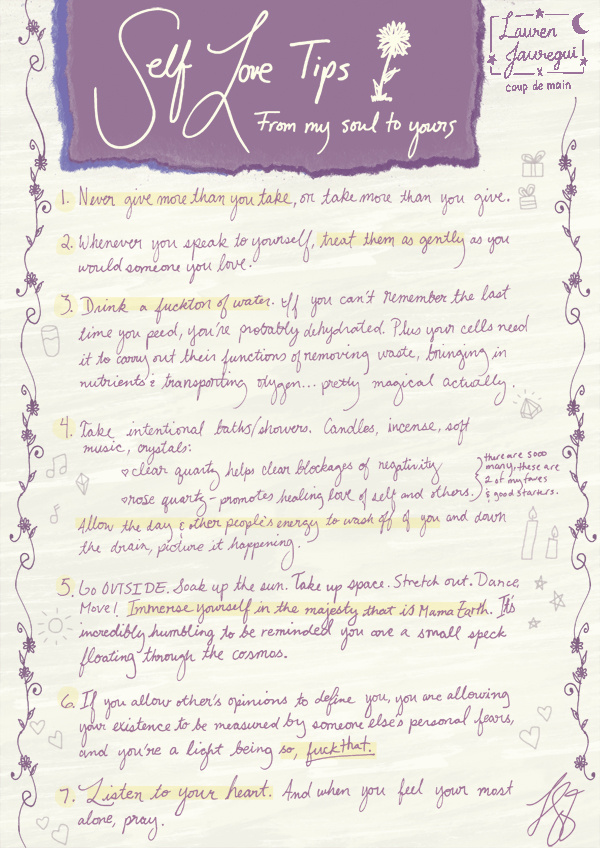 Self Love Tips
From my soul to yours
Lauren
Jauregui
x
coup de main
1. Never give more than you take, or take more than you give.
2. Whenever you speak to yourself, treat them as gently as you
would someone you love.
3. Drink a fuckton of water. If you can't remember the last
time you peed, you're probably dehydrated. Plus your cells need
it to carry out their functions of removing waste, bringing in
nutrients & transporting oxygen... pretty magical actually.
4. Take intentional baths/showers. Candles, incense, soft
music, crystals:
clear quartz helps clear blockages of negativity
rose quartz - promotes healing love of self and others.
there are sooo
many, these are
2 of my faves
& good starters.
Allow the day & other people's energy to wash off of you and down
the drain, picture it happening.
5. Go OUTSIDE. Soak up the sun. Take up space. Stretch out. Dance,
Move! Immerse yourself in the majesty that is Mama Earth. It's
incredibly humbling to be reminded you are a small speck
floating through the cosmos.
6. If you allow other's opinions to define you, you are allowing
your existence to be measured by someone else's personal fears,
and you're a light being so, fuck that.
7. Listen to your heart. And when you feel your most
alone, pray.